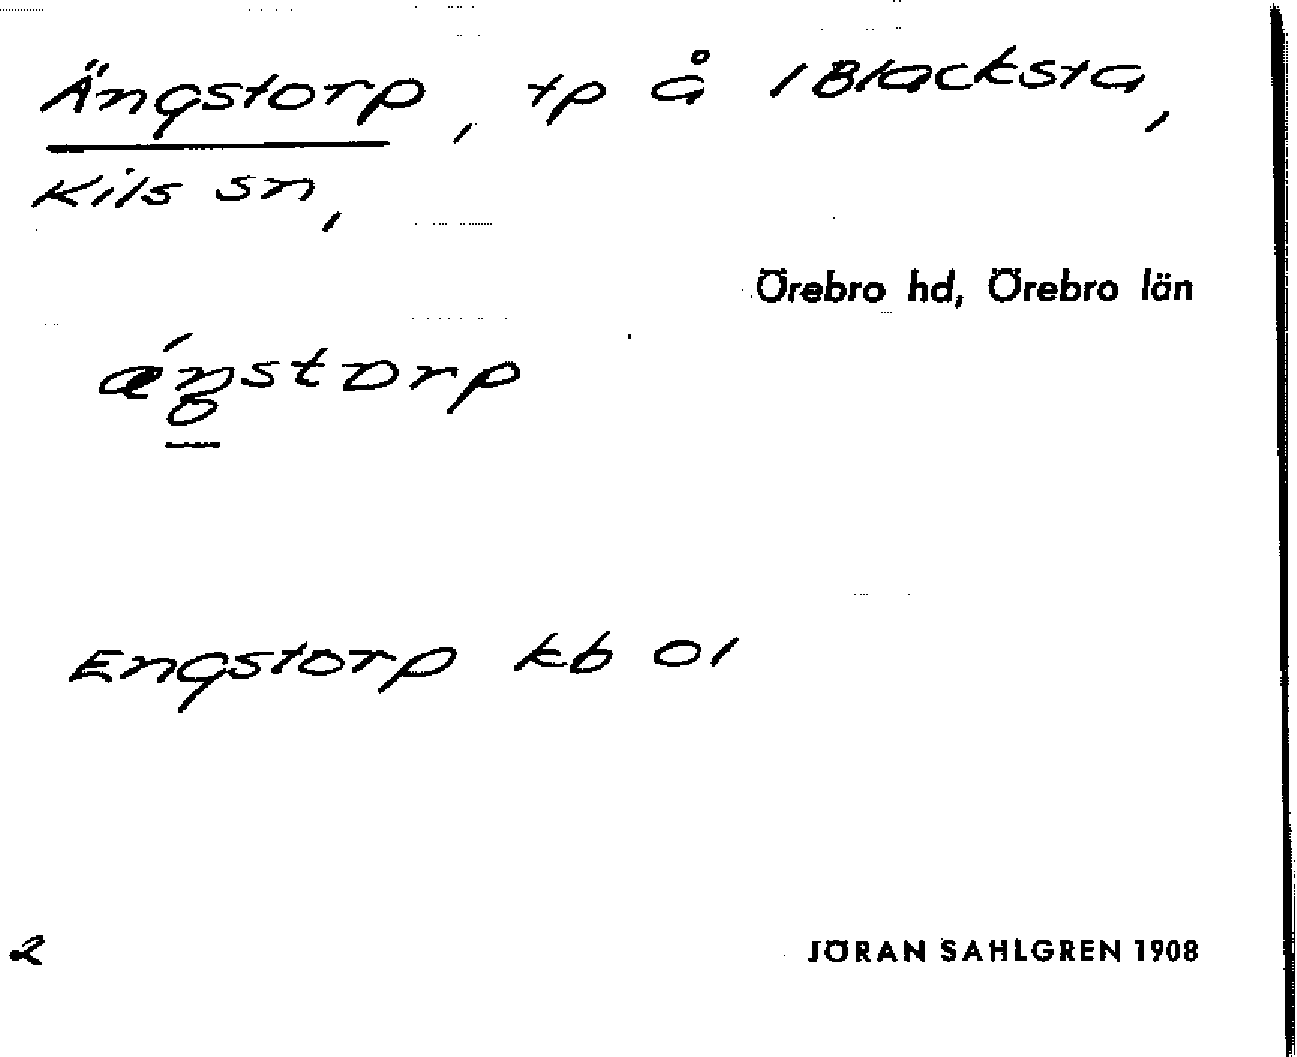 Ängstorp, tp å /Blacksta,
Kils sn,
Örebro hd, Örebro län
ǽŋstorp
Engstorp kb 01
2
JÖRAN SAHLGREN 1908